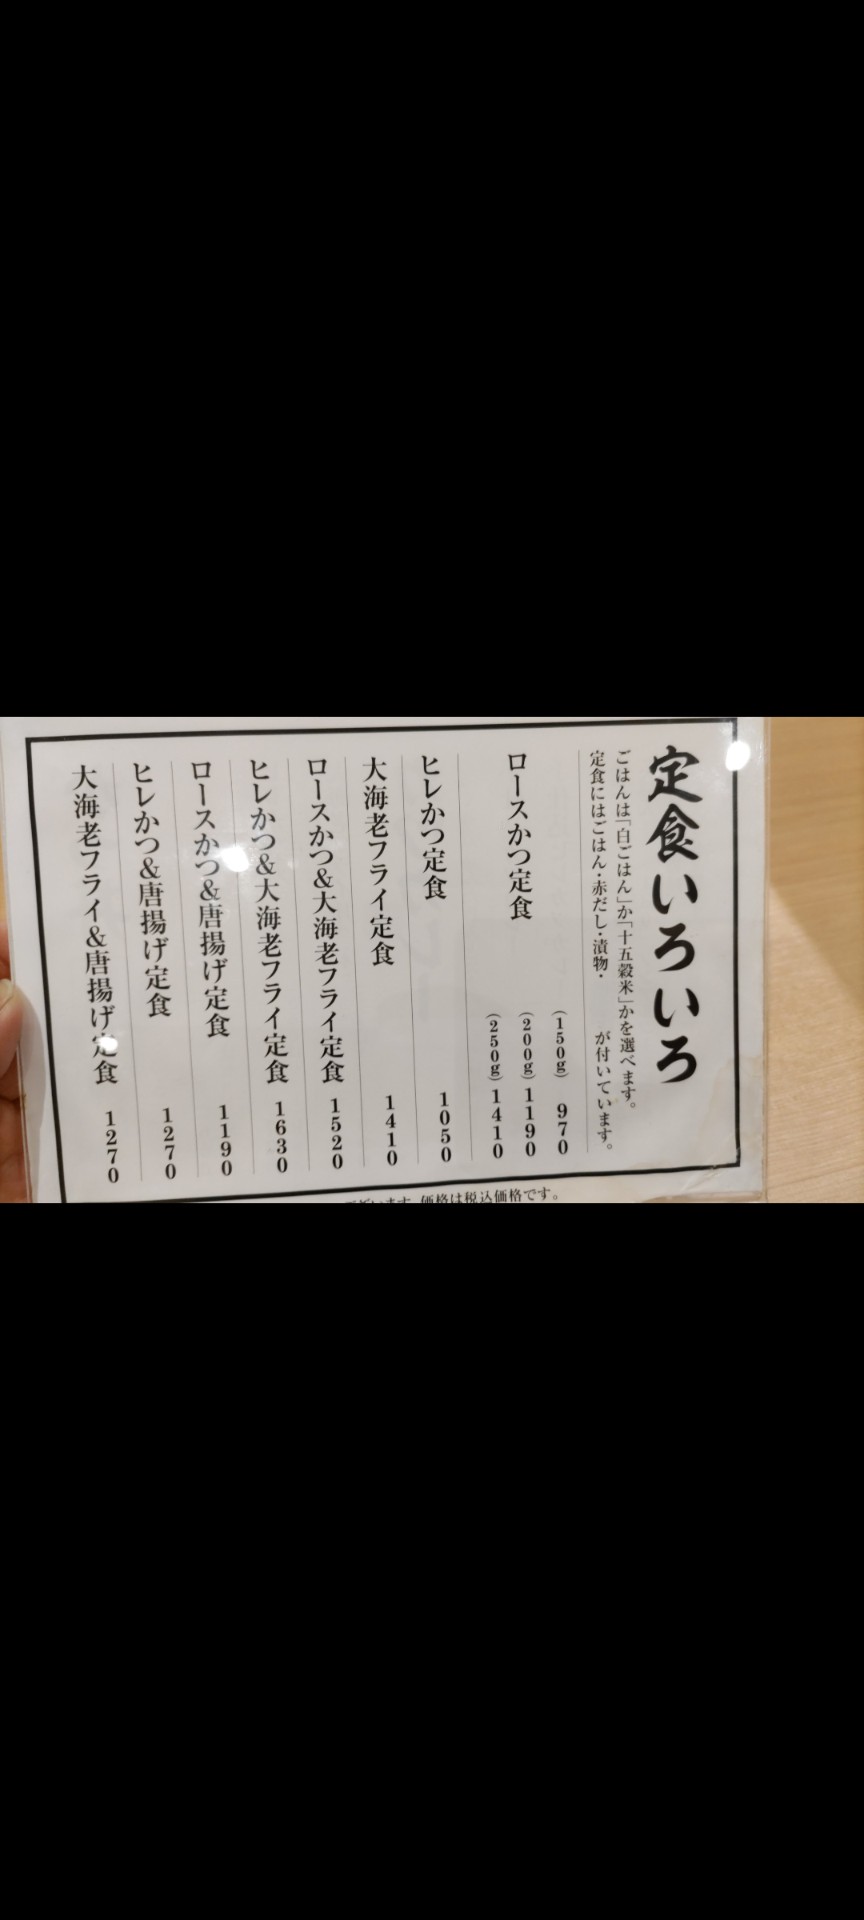 定食いろいろ
ごはんは「白ごはん」か「十五穀米」かを選べます。
定食にはごはん・赤だし・漬物・ が付いています。
ロースかつ定食
(150g) 970
(200g) 1190
(250g) 1410
ヒレかつ定食 1050
大海老フライ定食 1410
ロースかつ&大海老フライ定食 1520
ヒレかつ&大海老フライ定食 1630
ロースかつ&唐揚げ定食 1190
ヒレかつ&唐揚げ定食 1270
大海老フライ&唐揚げ定食 1270
価格は税込価格です。